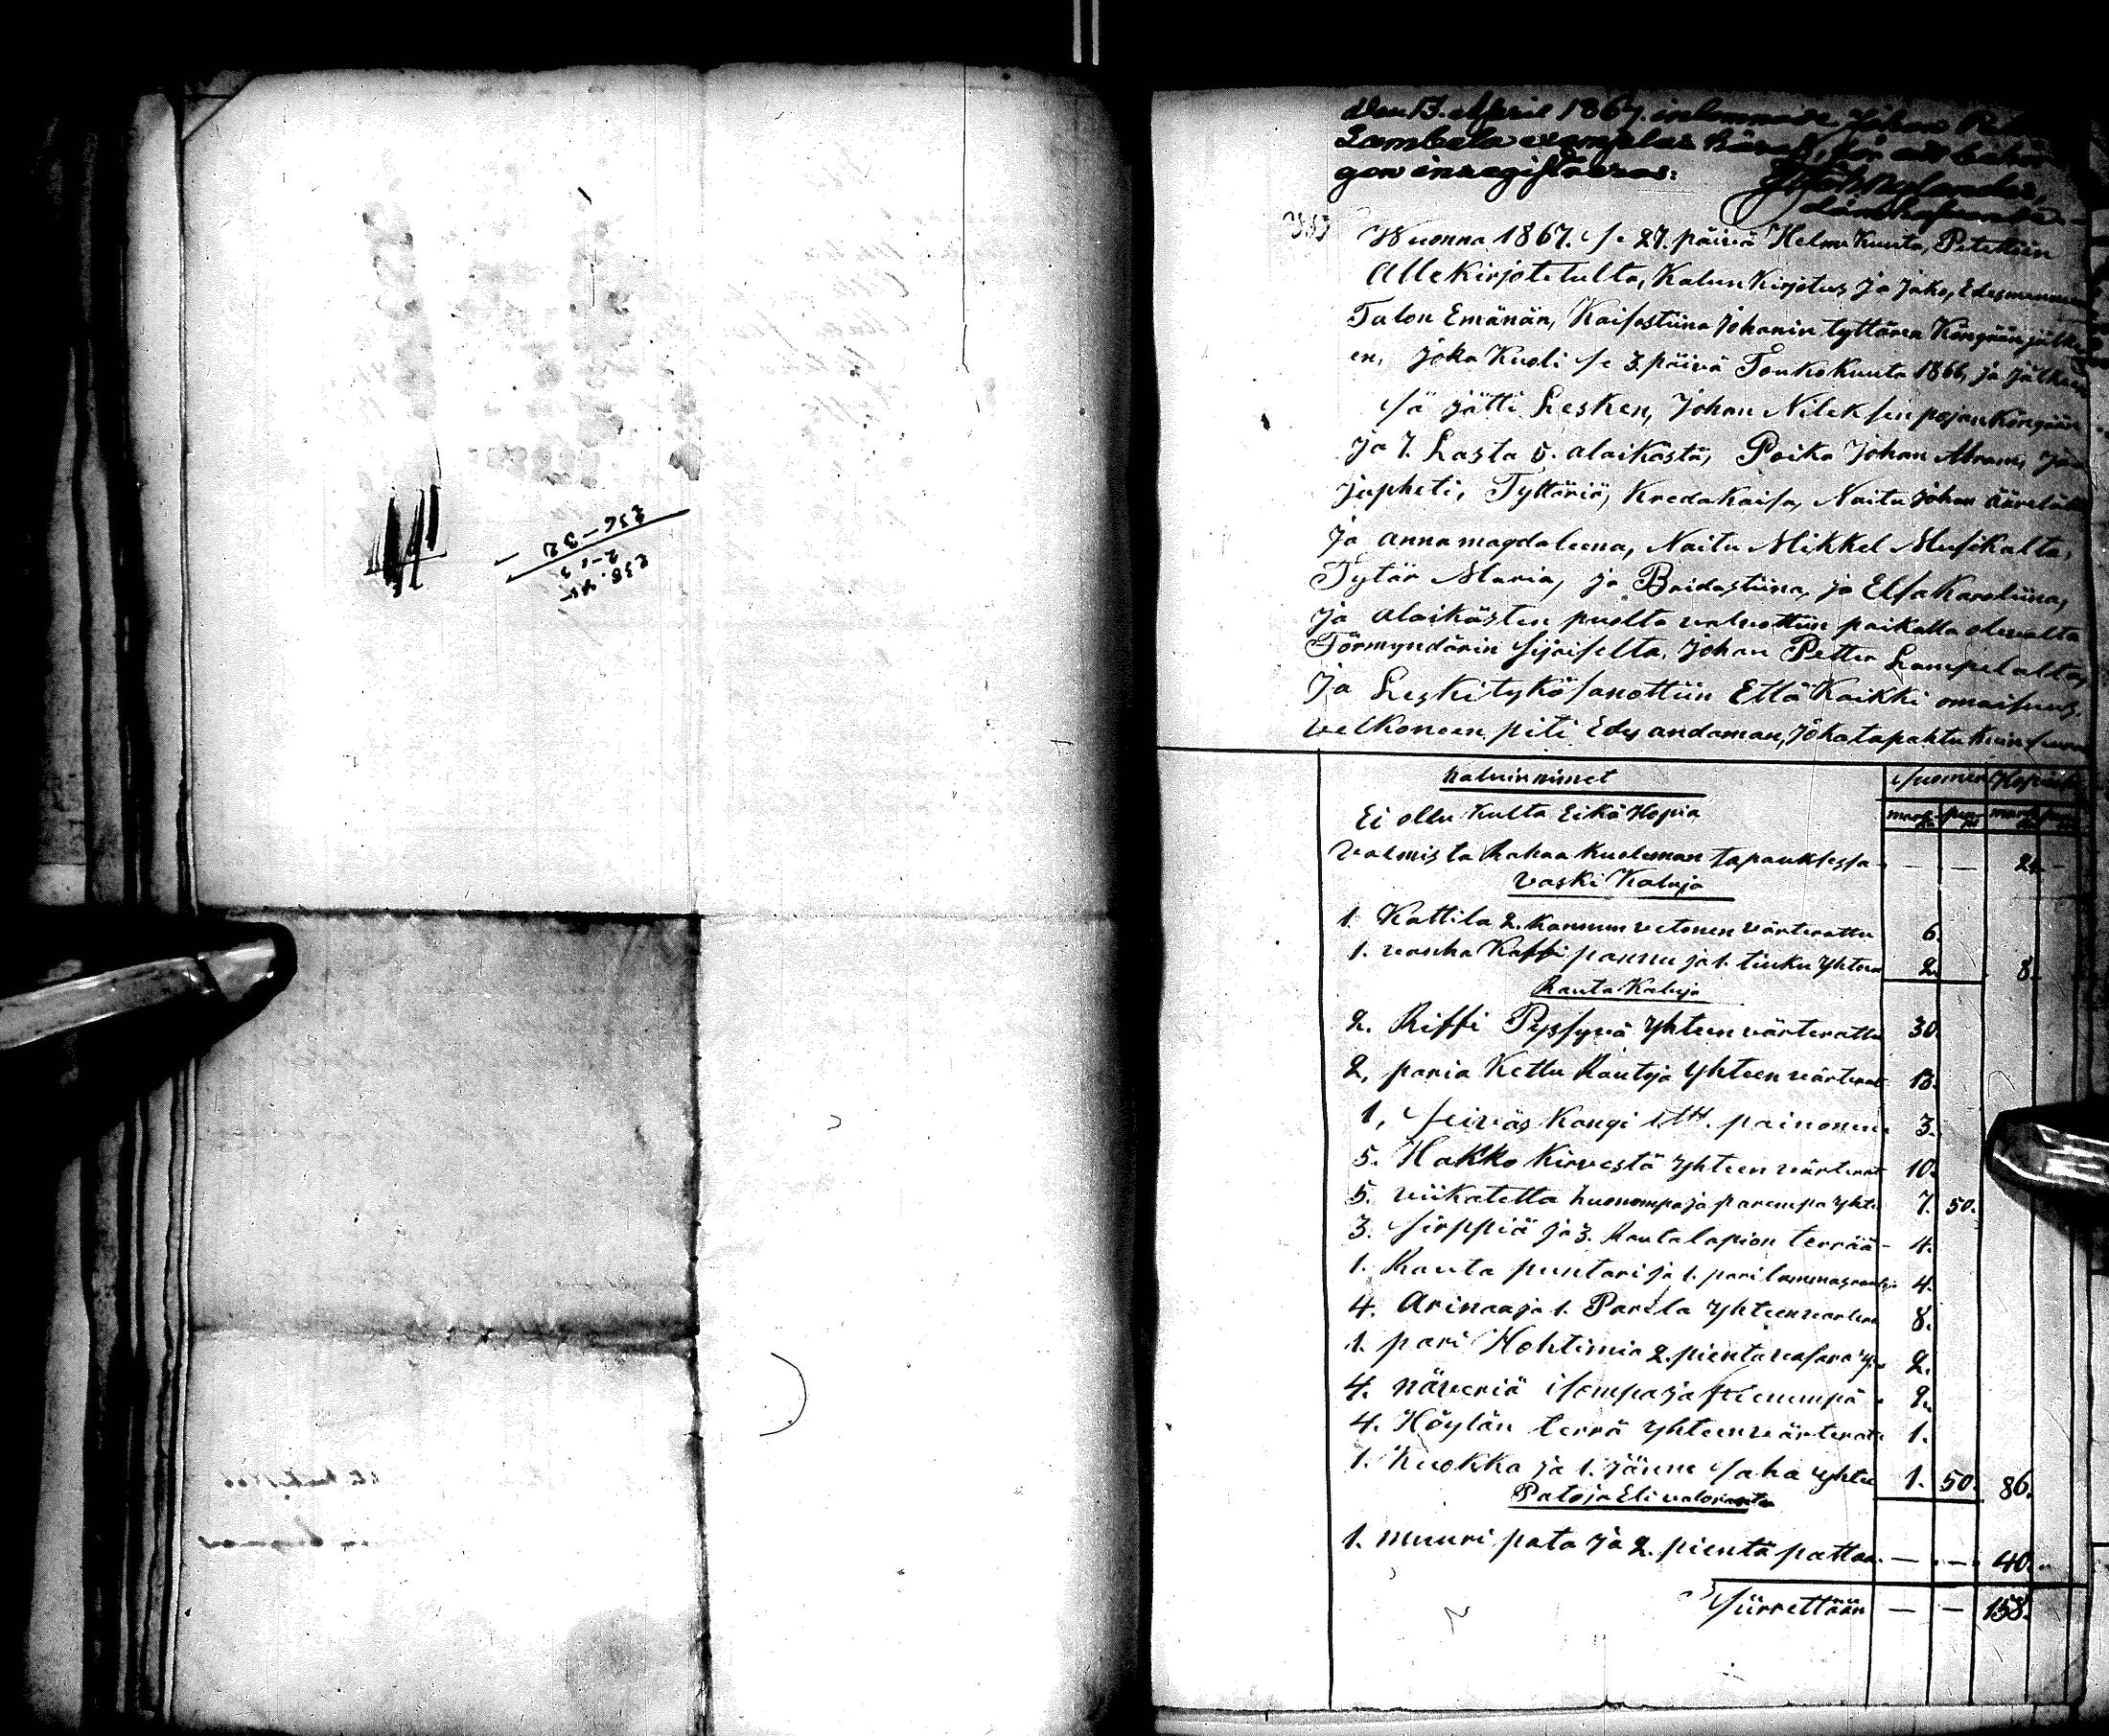 236-32
2-13
238.45
den 13. April 1867. inlemnade Johan Petter
Lambela exemplar häraf, för att behöri
gen inregistreras.
387
Wuonna 1867. se 27. päivä Helmikuuta, Pitettiin
Allekirjotetulta, Kalun Kirjotus Ja Jako, Edesmennen
Talon Emänän, Kaisastiina Johanin tyttären Köngään jälke
en, Joka Kuoli se 3. päivä Toukokuuta 1866, ja Jälkeen
sä jätti Lesken, Johan Nileksen pojan Köngään
Ja 7. Lasta 5. alaikästä, Poika Johan Abram, Ja
Japheti, Tyttäriä, Kreda Kaisa, Naitu Johan
Ja anna magdaleena, Naitu Mikkel Musikalta,
Tytär Maria, ja Briidastiina, ja Elsa Karoliina,
Ja alaikästen puolta valvottiin paikalla olevalta
Förmyndärin sijaiselta, Johan Petter Lampelalta,
Ja Leski tykö sanottiin Että Kaikki omaisuus
velkoneen piti Edes andaman, Joka tapahtu Kuin seura
Kaluin nimet
Suomen Hopia
mark pen mark
Ei ollu Kulta Eikä Hopia
Valmista Rahaa Kuoleman tapauksessa - - 24 -
Vaski Kaluja
1. Kattila 2. kannun vetonen värterattu 6.
1. vanha Kaffi pannu ja 1. tiuku Yhteen 2. 8.
Rauta Kaluja
2. Riffi Pyssyvä Yhteen värterattu 30.
2, paria Kettu Rautoja Yhteen värterat 13.
1, Seiväs Kangi 1 ltt. painonen 3.
5. Hakko Kirvestä Yhteen värterat 10.
5. viikatetta huonompa ja parempa Yhte 7. 50.
3. sirppiä ja 3. Rautalapion terrää - 4.
1. Rauta puntari ja 1. pari lammasrautoja 4.
4. Arinaa ja 1. Parila Yhteen värtera 8.
1. pari Hohtimia 2. pientä vasara Yh 2.
4. näveriä isompa ja pienempä 2.
4. Höylän terrä Yhteen värterat 1.
1. Kuokka ja 1. jänne saha Yhtee 1. 50. 86.
Patoja Eli valorauta
1. muuri pata Ja 2. pientä pattaa. - - 40.
Siirrettään - - 158.